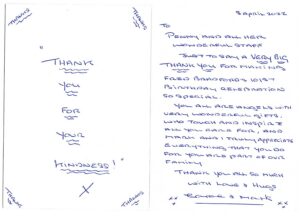 THANKS
THANKS
THANK
YOU
FOR
YOUR
KINDNESS!
X
THANKS
THANKS
8 APRIL 2022
TO
PENNY AND ALL HER
WONDERFUL STAFF
JUST TO SAY A VERY BIG
THANK YOU FOR MAKING
FRED BRADFORD'S 101ST
BIRTHDAY CELEBRATION
SO SPECIAL.
YOU ALL ARE ANGELS WITH
VERY WONDERFUL GIFTS,
WHO TOUCH AND INSPIRE
ALL YOU CARE FOR, AND
MARK AND I TRULY APPRECIATE
EVERYTHING THAT YOU DO
FOR YOU ARE PART OF OUR
FAMILY.
THANK YOU ALL SO MUCH
WITH LOVE & HUGS
& MARK